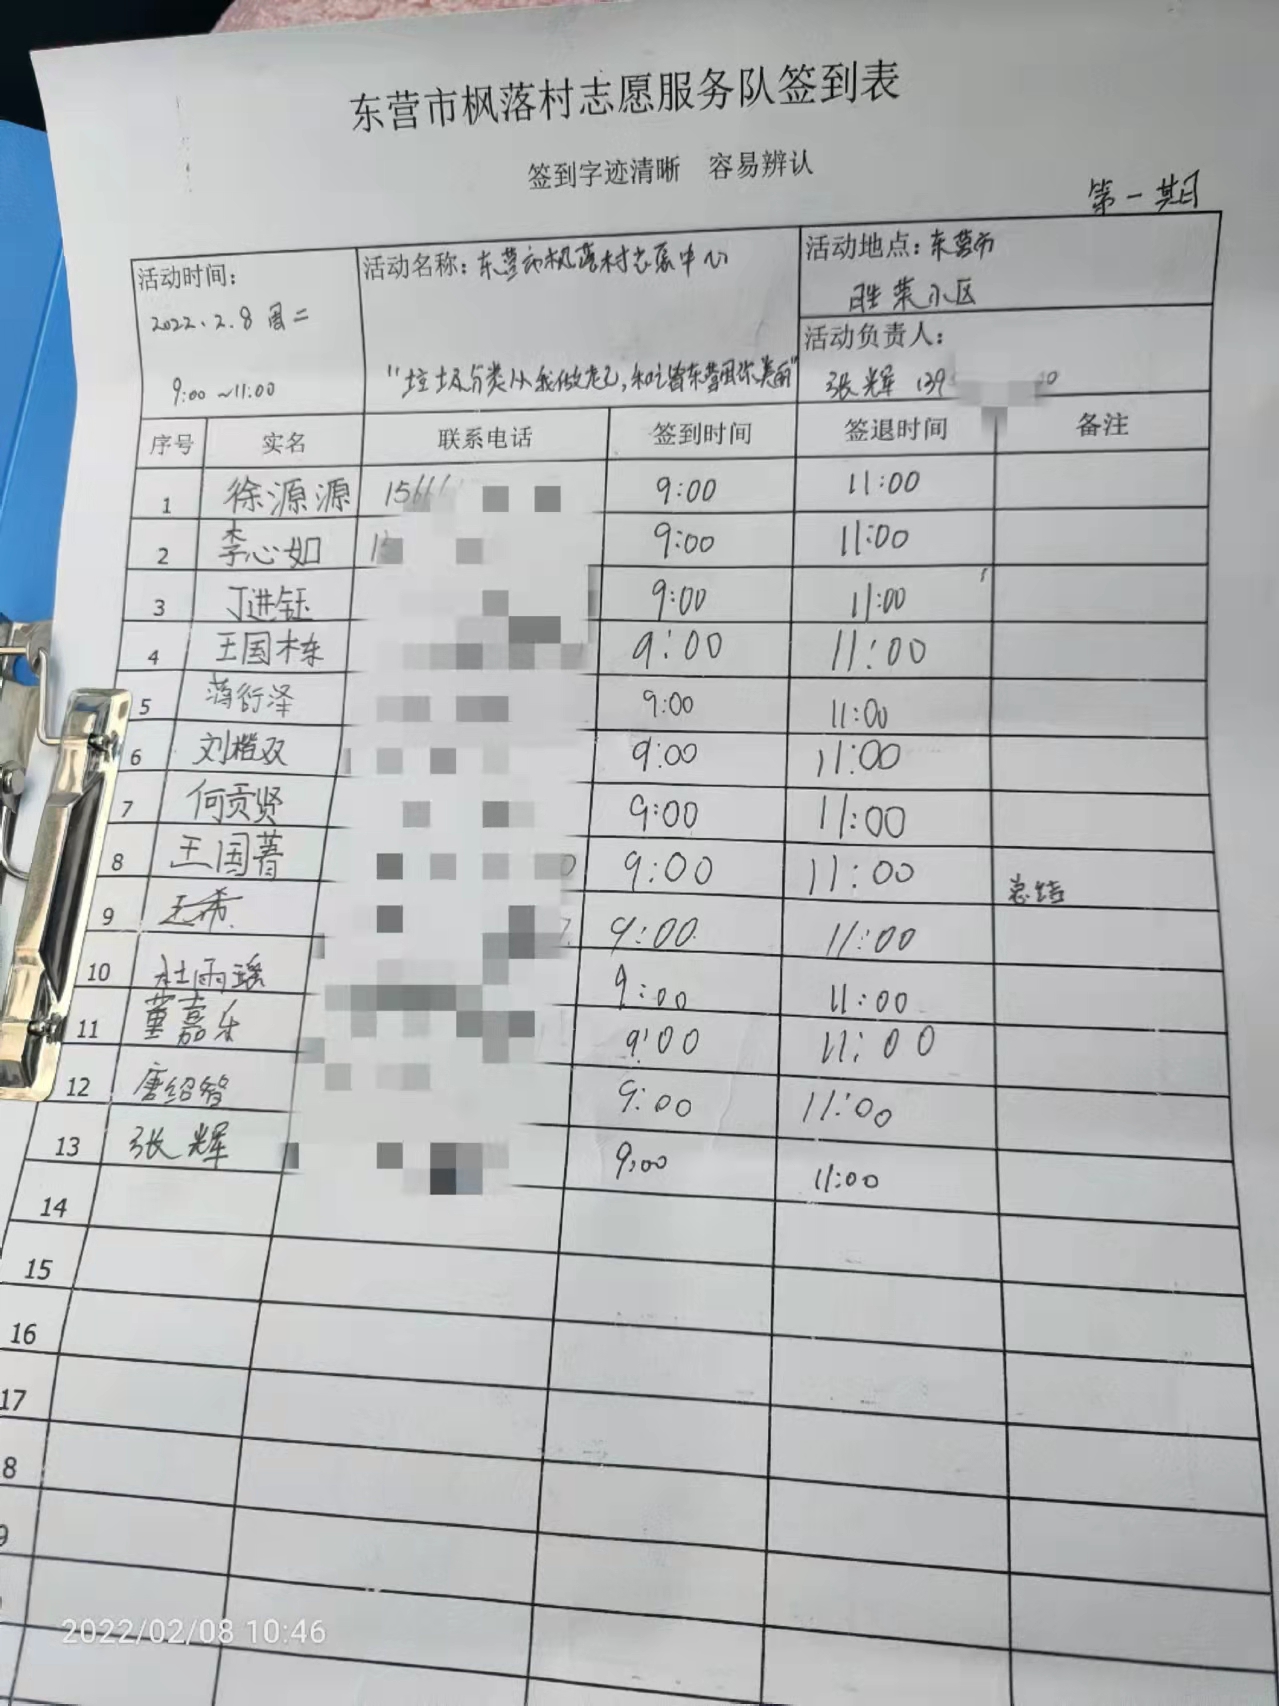 东营市枫落村志愿服务队签到表
签到字迹清晰 容易辨认
第一期
活动时间: 2022.2.8 周二 9:00~11:00
活动名称: 东营市枫落村志愿中心
"垃圾分类从我做起,和谐东营因你美丽"
活动地点: 东营市
胜荣小区
活动负责人:
张辉 139
序号 实名 联系电话 签到时间 签退时间 备注
1 徐源源 15666 9:00 11:00
2 李心如 15 9:00 11:00
3 丁进钰 9:00 11:00
4 王国栋 9:00 11:00
5 蒋衍泽 9:00 11:00
6 刘双 9:00 11:00
7 何贡贤 9:00 11:00
8 王国菁 9:00 11:00 总结
9 王希 9:00 11:00
10 杜雨瑶 9:00 11:00
11 董嘉乐 9:00 11:00
12 唐绍智 9:00 11:00
13 张辉 9:00 11:00
14
15
16
17
8
9
2022/02/08 10:46